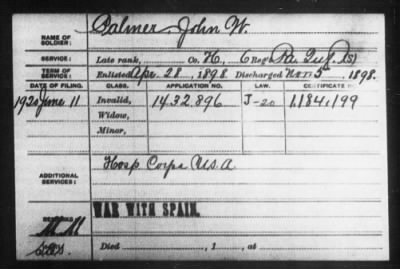 NAME OF SOLDIER: Palmer, John W.
SERVICE: Late rank, Co. H, 6 Reg't Pa. Inf.
TERM OF SERVICE: Enlisted Apr. 28, 1898. Discharged Nov. 5, 1898.
DATE OF FILING. CLASS. APPLICATION NO. LAW. CERTIFICATE
1920 June 11 Invalid, 1432,896 J-20 1,184,199
Widow,
Minor,
ADDITIONAL SERVICES: Hosp. Corps U.S.A.
WAR WITH SPAIN.
Died , 1 , at